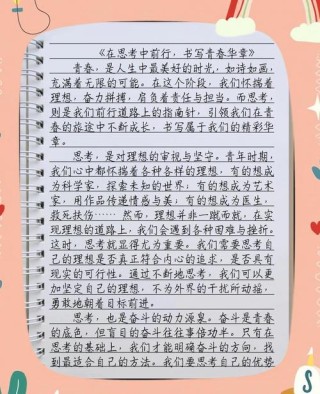 《在思考中前行，书写青春华章》
青春，是人生中最美好的时光，如诗如画，
充满着无限的可能。在这个阶段，我们怀揣着
理想，奋力拼搏，肩负着责任与担当。而思考，
则是我们前行道路上的指南针，引领我们在青
春的旅途中不断成长，书写属于我们的精彩华
章。
思考，是对理想的审视与坚守。青年时期，
我们心中都怀揣着各种各样的理想，有的想成
为科学家，探索未知的世界；有的想成为艺术
家，用作品传递情感与美；有的想成为医生，
救死扶伤……然而，理想并非一蹴而就，在实
现理想的道路上，我们会遇到各种困难与挫折。
这时，思考就显得尤为重要。我们需要思考自
己的理想是否真正符合内心的追求，是否具有
现实的可行性。通过不断地思考，我们可以更
加坚定自己的理想，不为外界的干扰所动摇，
勇敢地朝着目标前进。
思考，也是奋斗的动力源泉。奋斗是青春
的底色，但盲目的奋斗往往事倍功半。只有在
思考的基础上，我们才能明确奋斗的方向，找
到最适合自己的方法。我们要思考自己的优势
S